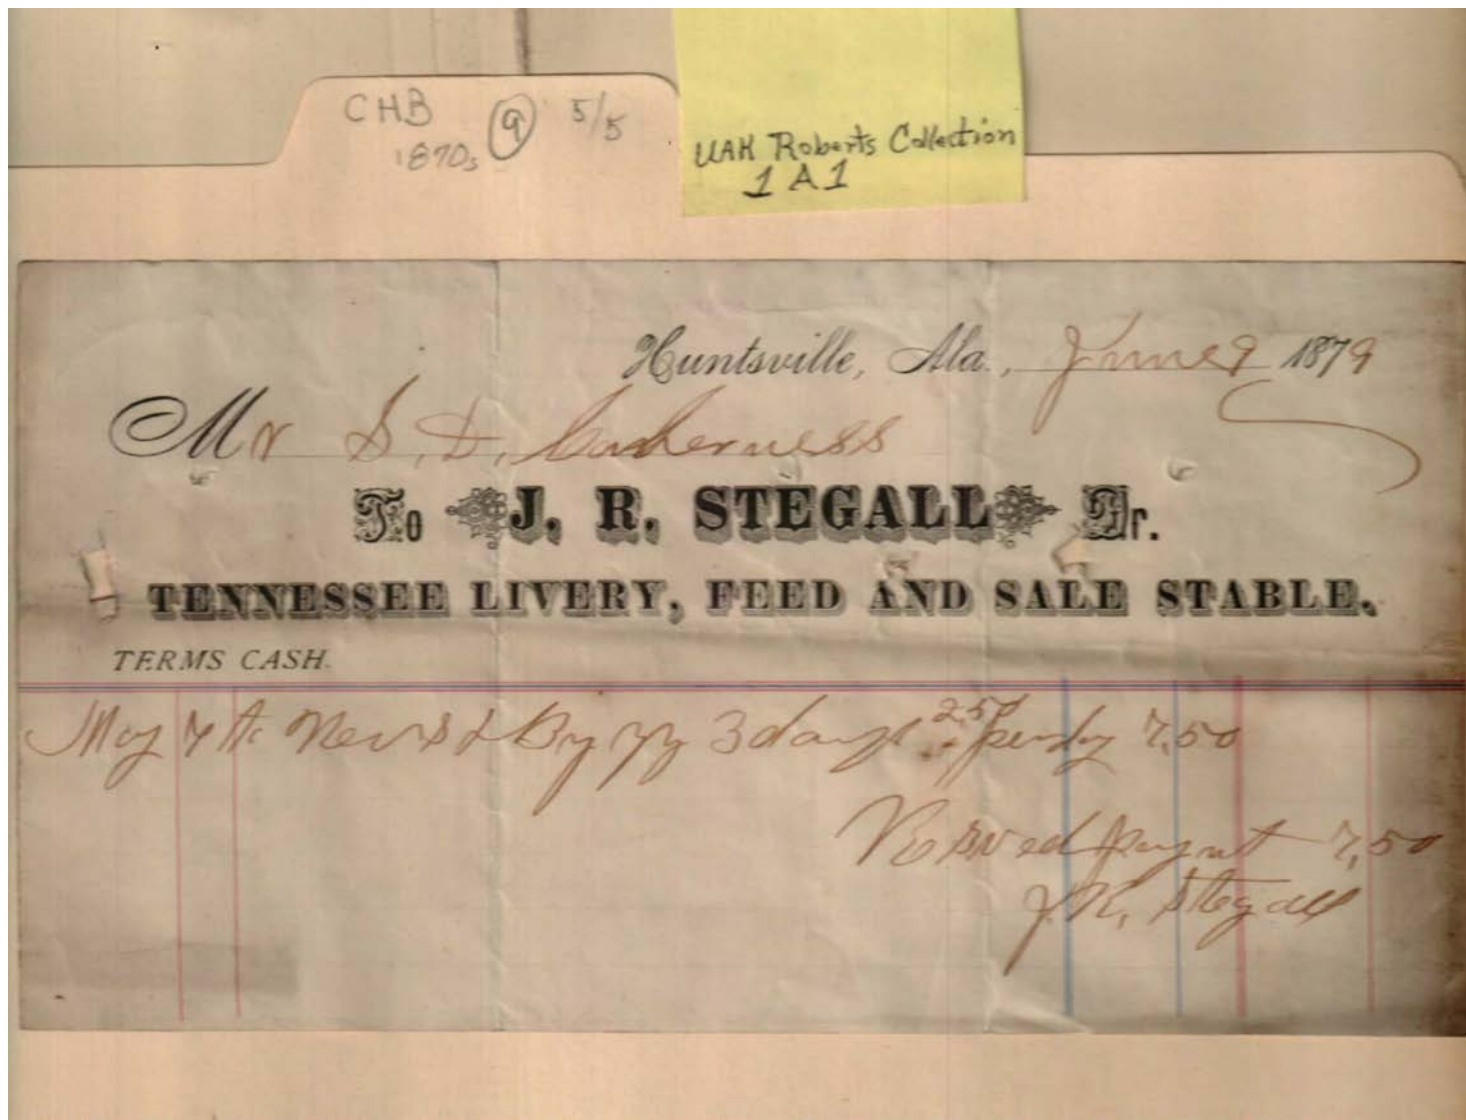 CHB 9 5/5
1870s
UAH Roberts Collection
1 A 1
Huntsville, Ala., June 9 1879
Mr S. D. Cabaness
To J. R. STEGALL Dr.
TENNESSEE LIVERY, FEED AND SALE STABLE.
TERMS CASH.
May 7 & Bugy 3 days 2.50 per day 7.50
Received payment 7,50
J. R. Stegall